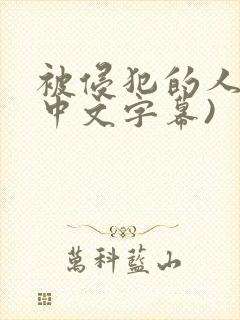 被侵犯的人
中文字幕)
萬科藍山